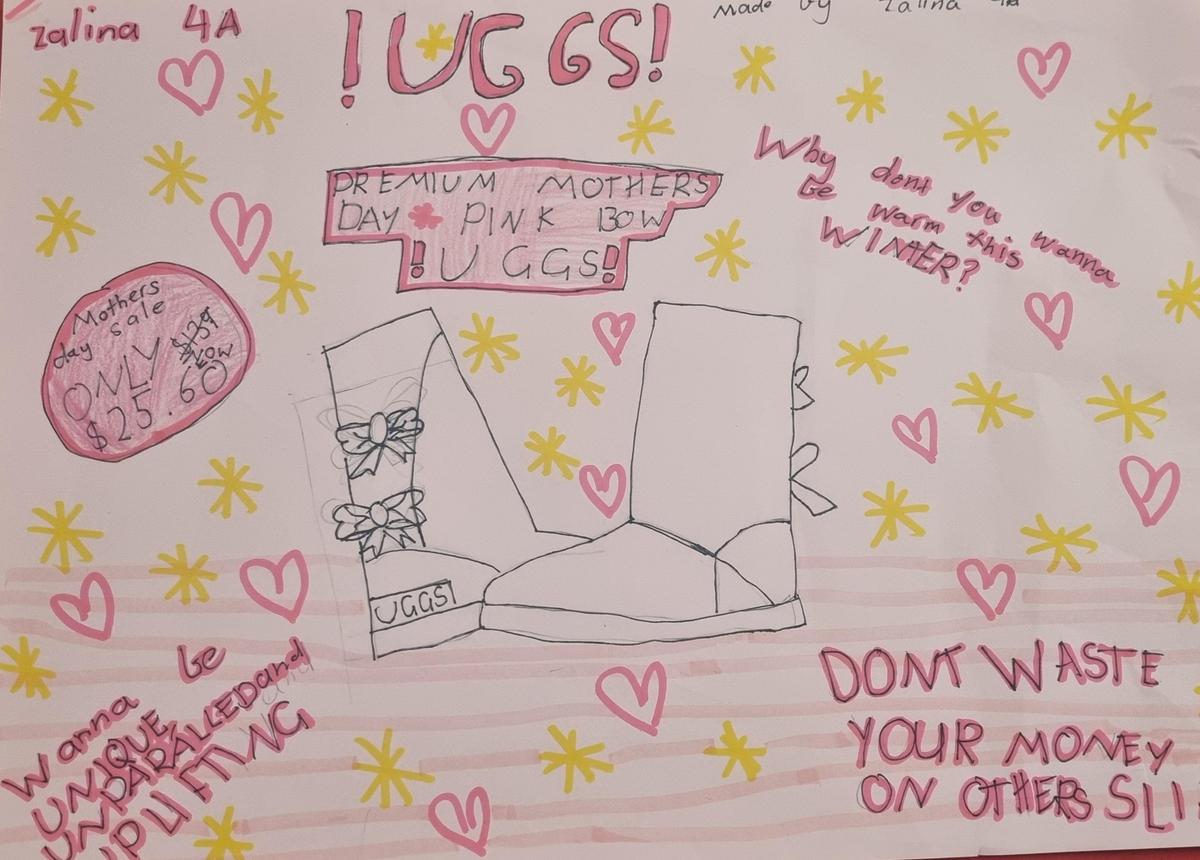 zalina 4A
Made by zalina 4A
!UGGS!
PREMIUM MOTHERS
DAY PINK BOW
!UGGS!
Why dont you wanna
be warm this
WINTER?
Mothers
day sale
ONLY $139
NOW
$25.60
UGGS!
Wanna be
UNIQUE
UNPARALLEDand
UPLIFTING
DONT WASTE
YOUR MONEY
ON OTHERS SLI